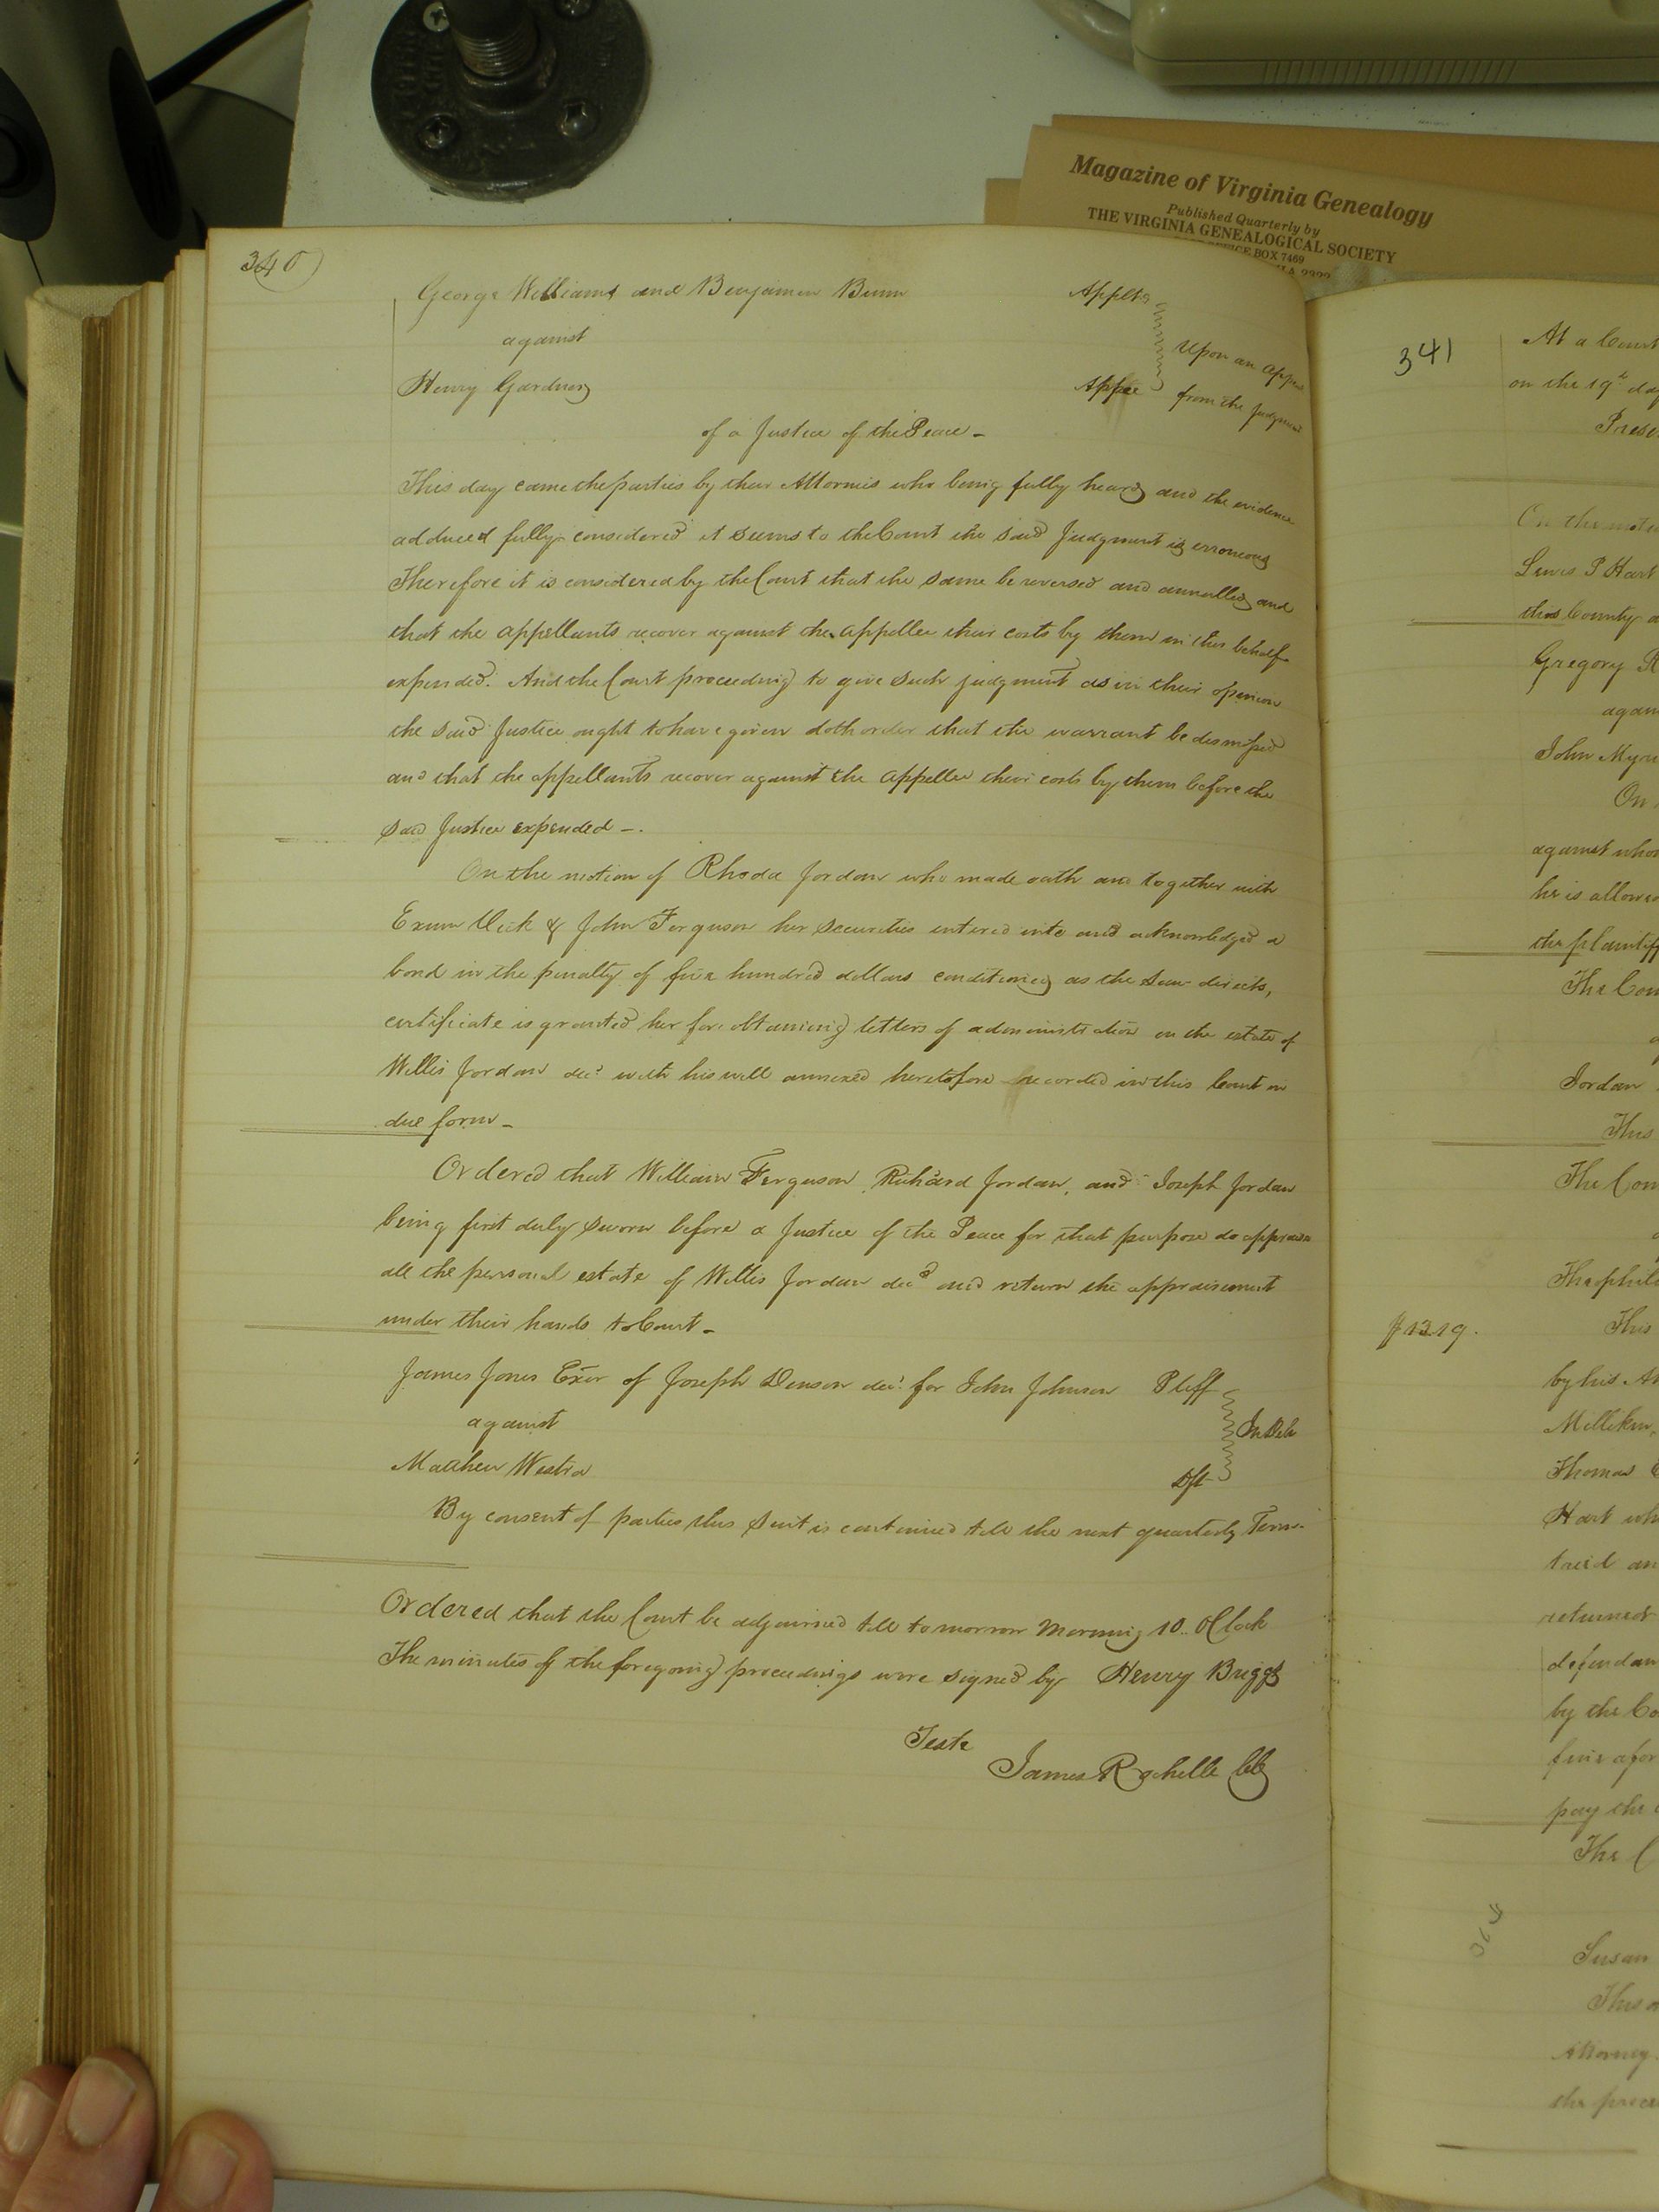 Magazine of Virginia Genealogy
Published Quarterly by
THE VIRGINIA GENEALOGICAL SOCIETY
BOX 7469
340
George Williams and Benjamin Bunn Applts
against Upon an appeal
Henry Gardner Appee from the Judgment
of a Justice of the Peace -
This day came the parties by their Attornies who being fully heard and the evidence
adduced fully considered it seems to the Court the said Judgment is erroneous
Therefore it is considered by the Court that the same be reversed and annulled and
that the appellants recover against the appellee their costs by them in this behalf
expended. And the Court proceeding to give such judgment as in their opinion
the said Justice ought to have given doth order that the warrant be dismissed
and that the appellants recover against the appellee their costs by them before the
said Justice expended -.
On the motion of Rhoda Jordan who made oath and together with
Exum & John Ferguson her securities entered into and acknowledged a
bond in the penalty of five hundred dollars conditioned as the Law directs,
certificate is granted her for obtaining letters of administration on the estate of
Willis Jordan decd with his will annexed heretofore recorded in this Court in
due form -
Ordered that William Ferguson, Richard Jordan, and Joseph Jordan
being first duly sworn before a Justice of the Peace for that purpose do appraise
all the personal estate of Willis Jordan decd and return the appraisement
under their hands to Court -
James Jones Exor of Joseph Denson decd for John Johnson Pltff
against In Deb
Matthew Westra Dft
By consent of parties this suit is continued till the next quarterly Term.
Ordered that the Court be adjourned till tomorrow Morning 10.. OClock
The minutes of the foregoing proceedings were signed by Henry Briggs
Teste
James Rochelle Clk
341
At a Court
on the 19th day
Prese
On the moti
Lewis P Hart
this County
Gregory
again
John Myri
On
against whom
he is allowed
the plaintiff
The Cou
Jordan
This
The Cou
Theophil
$ 13.19. This
by his At
Millikin,
Thomas
Hart wh
tried an
returned
defendan
by the Co
five afor
pay the
The C
Susan
This
Attorney
the proce